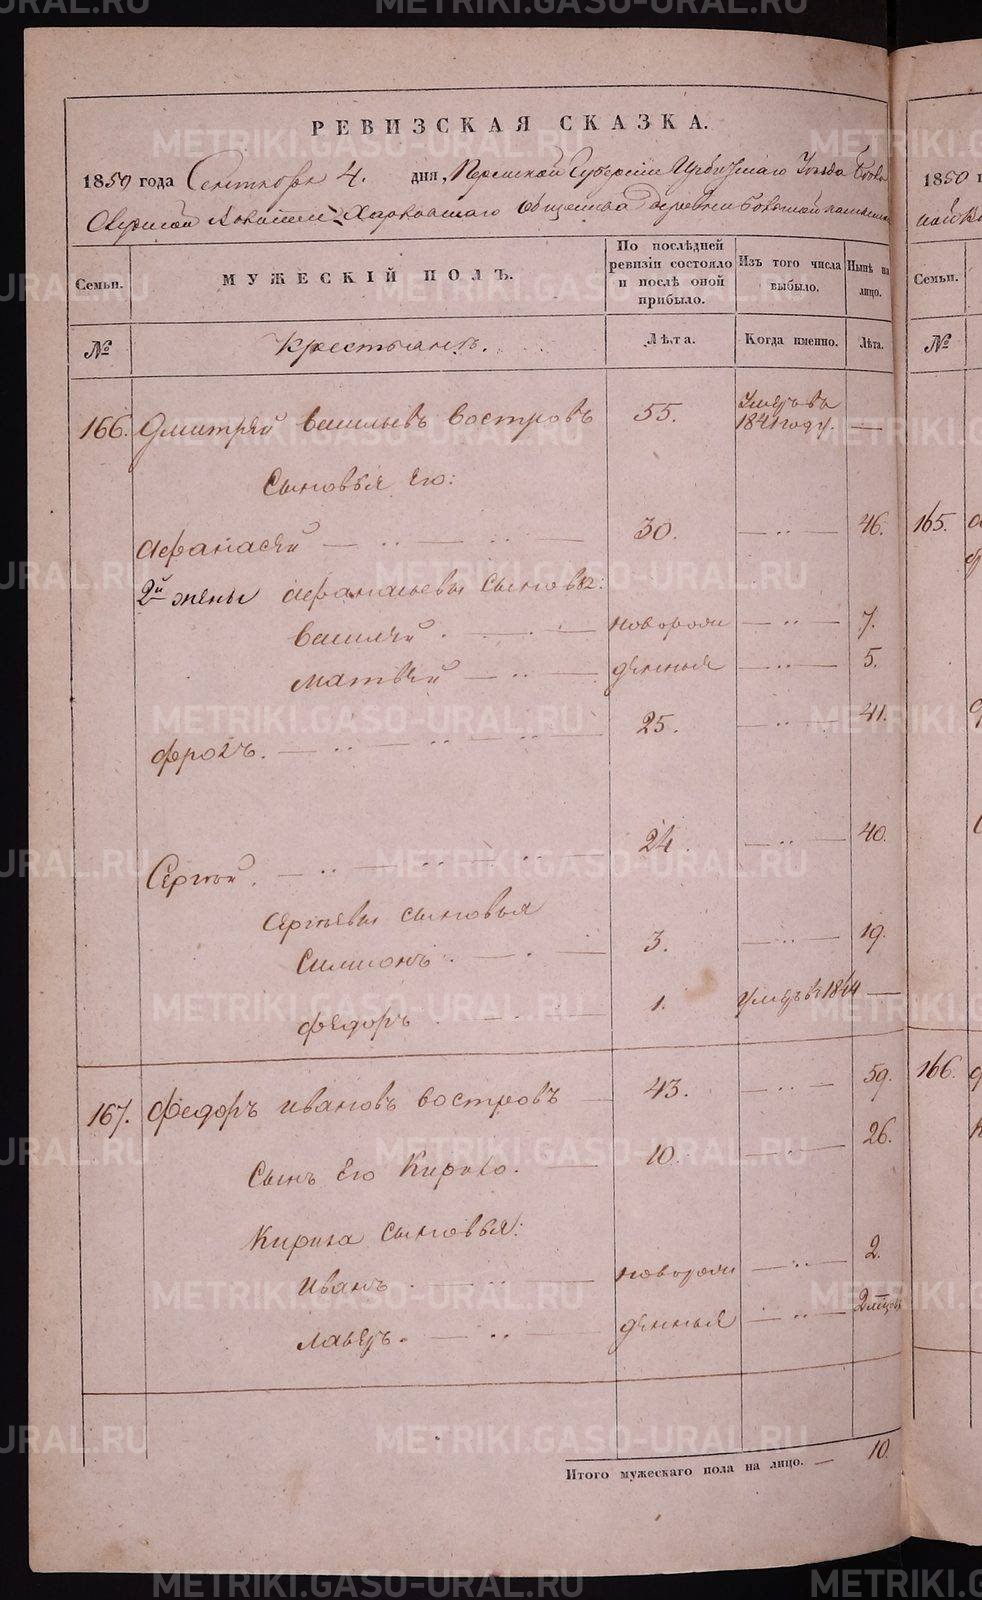 METRIKI.GASO-URAL.RU
РЕВИЗСКАЯ СКАЗКА.
1859 года Сентября 4. дня, Пермской Губернии Ирбитскаго Уезда
волости Харловшаго общества деревни большой
1850
Семьи.
МУЖЕСКІЙ ПОЛЪ.
По послѣдней ревизіи состояло и послѣ оной прибыло.
Изъ того числа выбыло.
Нынѣ на лицо.
Семьи.
№
Крестьянъ.
Лѣта.
Когда именно.
Лѣта.
№
166. Дмитрей васильевъ востровъ 55. Умеръ въ 1841 году. —
Сыновья Его:
Афанасей — 30. — 46.
165.
2й жены Афанасьевы сыновья:
василей. — новорож — 7.
матвей — денныя — 5.
Фролъ. — 25. — 41.
Сергей. — 24. — 40.
Сергеевы сыновья
Симионъ. — 3. — 19.
Федоръ. — 1. умеръ в 1844 —
167. Федоръ ивановъ востровъ — 43. — 59.
166.
Сынъ Его Кирило. — 10. — 26.
Кирила сыновья:
иванъ — новорож — 2.
лаверъ. — денныя — 2 месяц
Итого мужескаго пола на лицо. — 10.